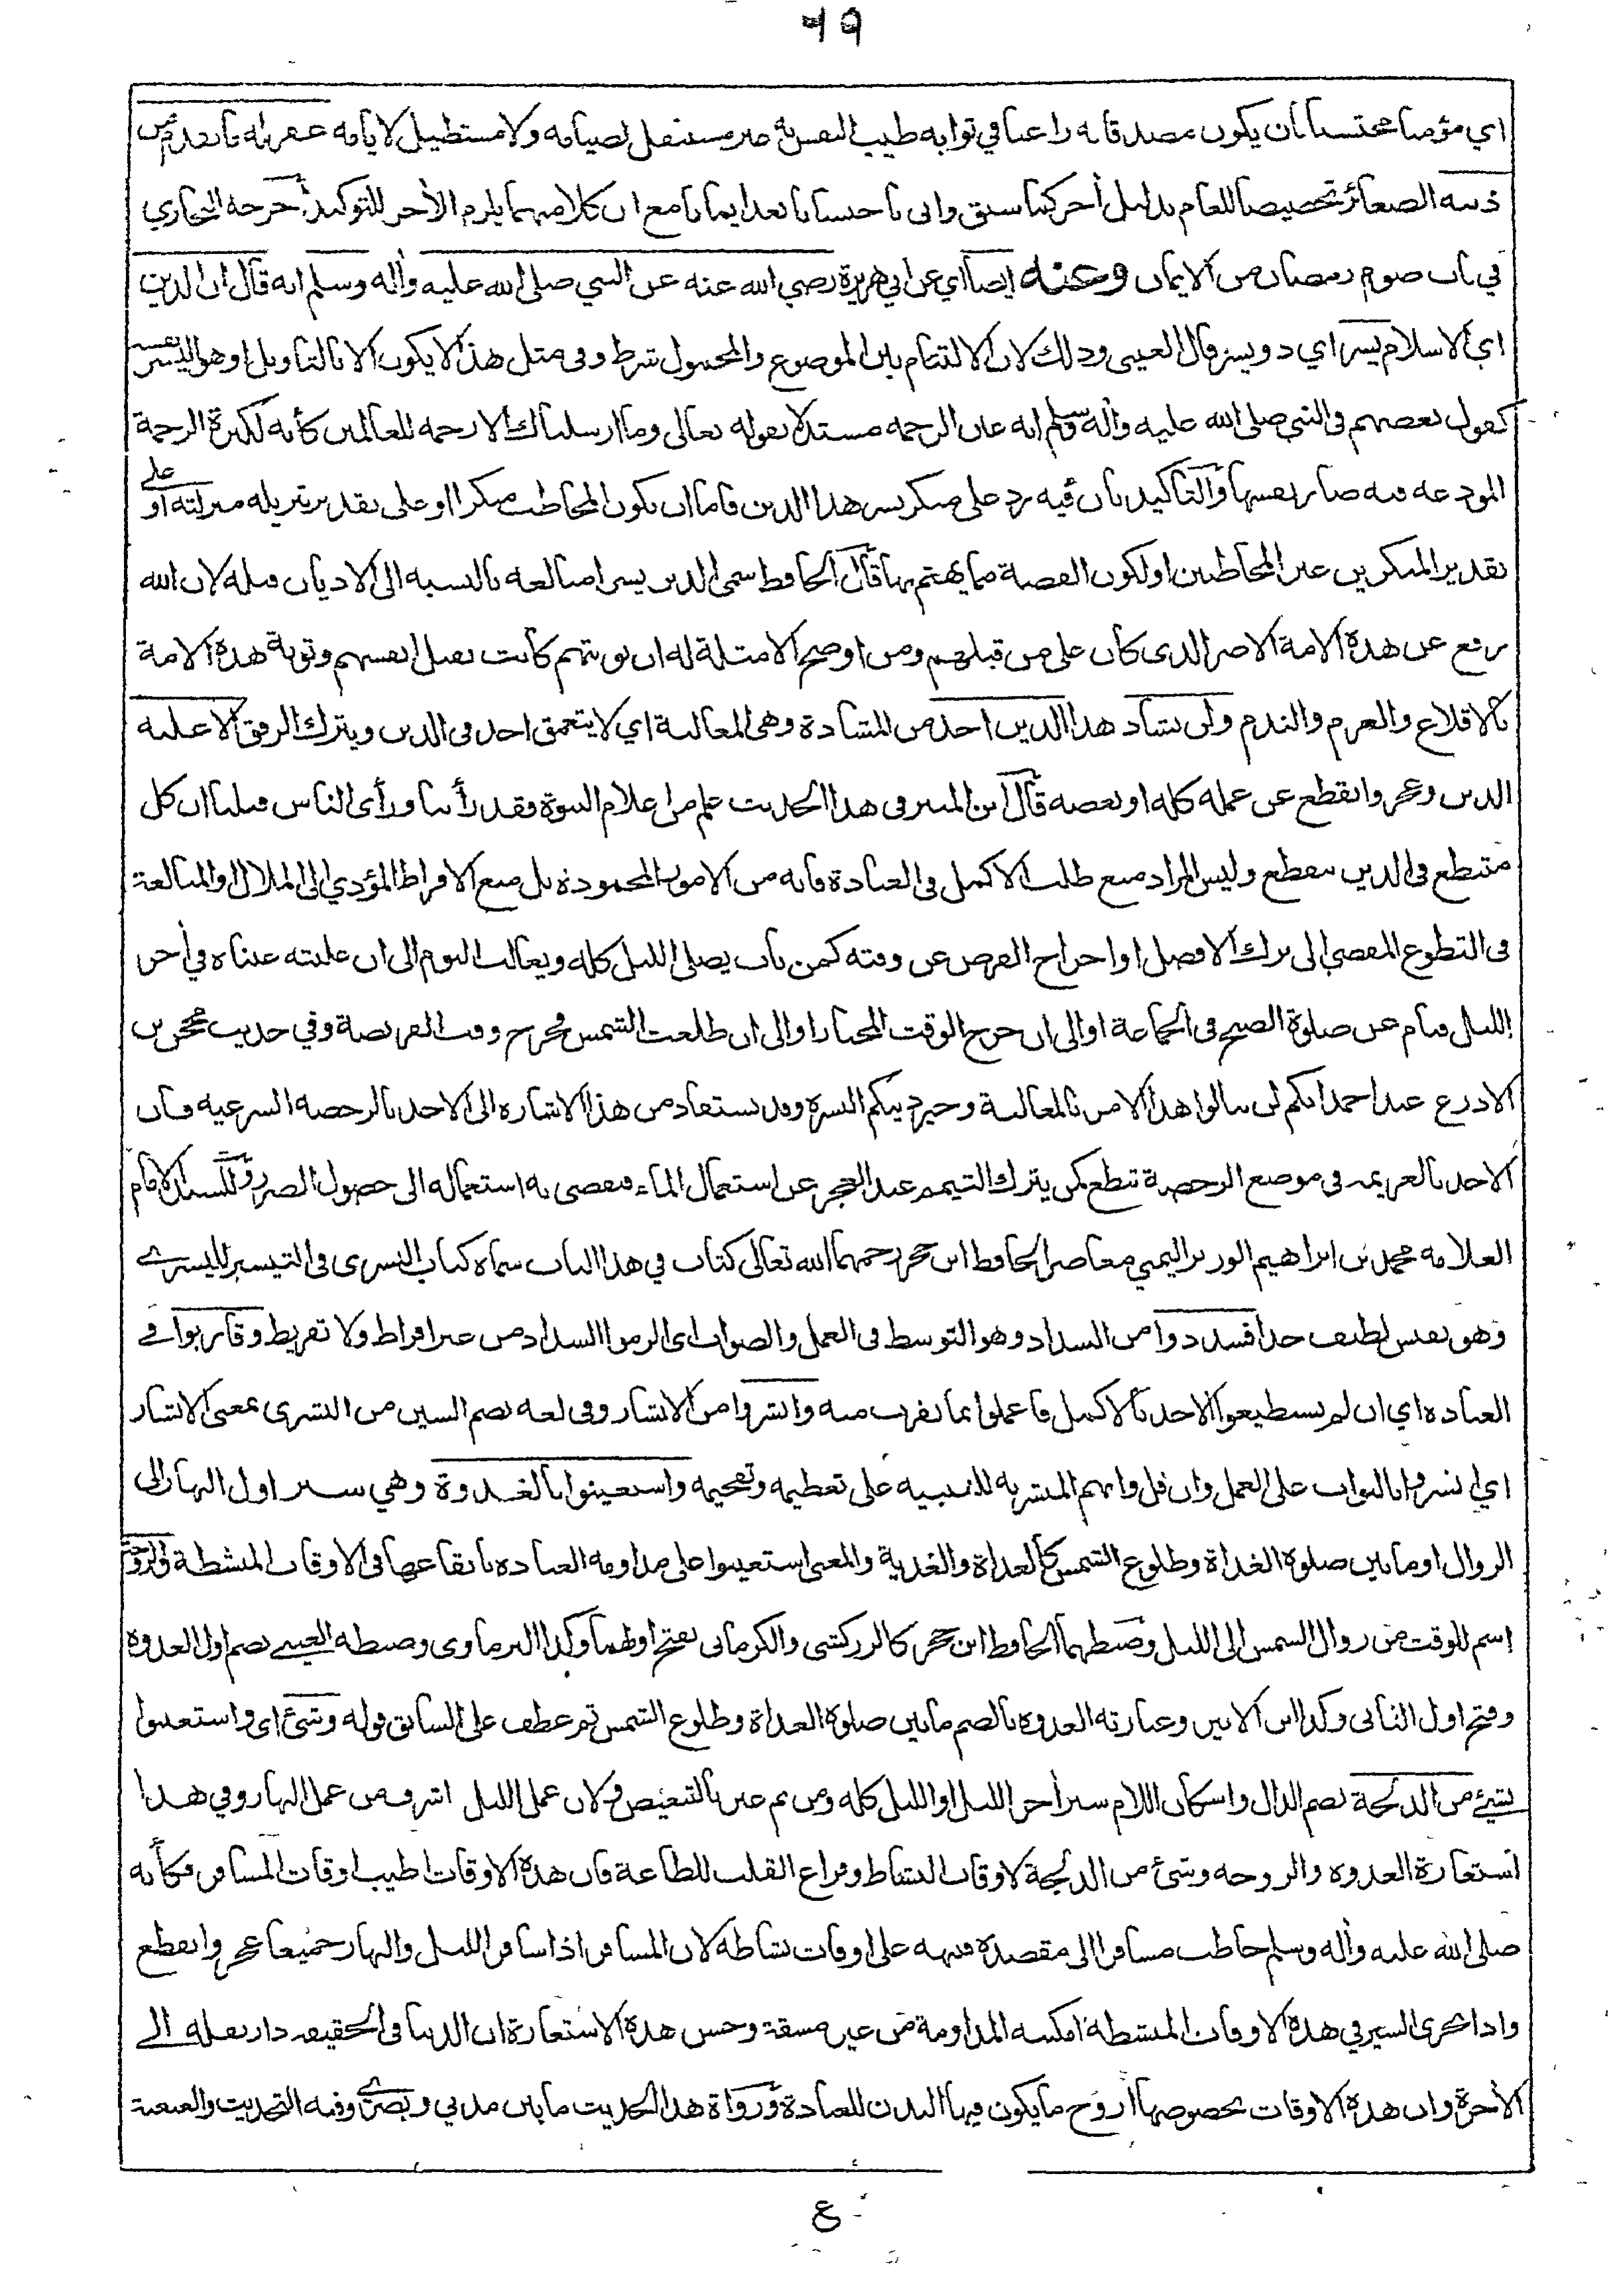 ٦٩
اي مؤمنا محتسبا بان يكون مصدقا به راغبا في ثوابه طيب النفس به غير مستثقل لصيامه ولا مستطيل لايامه غفر له ما تقدم من
ذنبه الصغائر تخصيصا للعام بدليل أخر كما سبق واتى باحتسابا بعد ايمانا مع ان كلا منهما يلزم الأخر للتوكيد أخرجه البخاري
في باب صوم رمضان من الايمان وعنه ايضا اي عن ابي هريرة رضي الله عنه عن النبي صلى الله عليه وأله وسلم انه قال ان الدين
اي الاسلام يسر اي ذو يسر قال العيني وذلك لان الالتئام بين الموضوع والمحمول شرط وفي مثل هذا لا يكون الا بالتاويل او هو اليسر نفسه
كقول بعضهم في النبي صلى الله عليه وأله وسلم انه عين الرحمة مستدلا بقوله تعالى وما ارسلناك الا رحمة للعالمين كأنه لكثرة الرحمة
المودعة فيه صار نفسها والتأكيد بان فيه رد على منكر يسر هذا الدين فاما ان يكون المخاطب منكرا او على تقدير تنزيله منزلته او على
تقدير المنكرين غير المخاطبين او لكون القصة مما يهتم بها قال الحافظ سمى الدين يسرا مبالغة بالنسبة الى الاديان قبله لان الله
رفع عن هذه الامة الاصر الذي كان على من قبلهم ومن اوضح الامثلة له ان توبتهم كانت بقتل انفسهم وتوبة هذه الامة
بالاقلاع والعزم والندم ولن يشاد هذا الدين احد من المشادة وهي المغالبة اي لا يتعمق احد في الدين ويترك الرفق الا غلبه
الدين وعجز وانقطع عن عمله كله او بعضه قال ابن المنير في هذا الحديث علم من اعلام النبوة فقد رأينا ورأى الناس قبلنا ان كل
متنطع في الدين ينقطع وليس المراد منع طلب الاكمل في العبادة فانه من الامور المحمودة بل منع الافراط المؤدي الى الملال او المبالغة
في التطوع المفضي الى ترك الافضل او اخراج الفرض عن وقته كمن بات يصلي الليل كله ويغالب النوم الى ان غلبته عيناه في أخر
الليل فنام عن صلوة الصبح في الجماعة او الى ان خرج الوقت المختار او الى ان طلعت الشمس فخرج وقت الفريضة وفي حديث محجن بن
الادرع عند احمد انكم لن تنالوا هذا الامر بالمغالبة وخير دينكم اليسرة وقد يستفاد من هذا الاشارة الى الاخذ بالرخصة الشرعية فان
الاخذ بالعزيمة في موضع الرخصة تنطع كمن يترك التيمم عند العجز عن استعمال الماء فيفضي به استعماله الى حصول الضرر وللسيد الامام
العلامة محمد بن ابراهيم الوزير اليمني معاصر الحافظ ابن حجر رحمهما الله تعالى كتاب في هذا الباب سماه كتاب اليسرى في التيسير لليسرى
وهو نفيس لطيف جدا فسددوا من السداد وهو التوسط في العمل والصواب اي الزموا السداد من غير افراط ولا تفريط وقاربوا في
العبادة اي ان لم تستطيعوا الاخذ بالاكمل فاعملوا بما يقرب منه وابشروا من الابشار وفي لغة بضم الشين من البشرى بمعنى الابشار
اي ابشروا بالثواب على العمل وان قل وابهم المبشر به للتنبيه على تعظيمه وتفخيمه واستعينوا بالغدوة وهي سير اول النهار الى
الزوال او ما بين صلوة الغداة وطلوع الشمس كالغداة والغدية والمعنى استعينوا على مداومة العبادة بايقاعها في الاوقات المنشطة والروحة
اسم للوقت من زوال الشمس الى الليل وضبطهما الحافظ ابن حجر كالزركشي والكرماني بفتح اولهما وكذا البرماوي وضبطه العيني بضم اول الغدوة
وفتح اول الثاني وكذا ابن الاثير وعبارته الغدوة بالضم ما بين صلوة الغداة وطلوع الشمس ثم عطف على السابق قوله وشئ اي واستعينوا
بشيء من الدلجة بضم الدال واسكان اللام سير أخر الليل او الليل كله ومن ثم عبر بالتبعيض ولان عمل الليل اشرف من عمل النهار وفي هذا
استعارة الغدوة والروحة وشئ من الدلجة لاوقات النشاط وفراغ القلب للطاعة فان هذه الاوقات اطيب اوقات المسافر فكأنه
صلى الله عليه وأله وسلم خاطب مسافرا الى مقصده فنبهه على اوقات نشاطه لان المسافر اذا سافر الليل والنهار جميعا عجز وانقطع
واذا تحرى السير في هذه الاوقات المنشطة امكنته المداومة من غير مشقة وحسن هذه الاستعارة ان الدنيا في الحقيقة دار نقلة الى
الأخرة وان هذه الاوقات بخصوصها أروح ما يكون فيها البدن للعبادة ورواة هذا الحديث ما بين مدني وبصري وفيه التحديث والعنعنة
ع